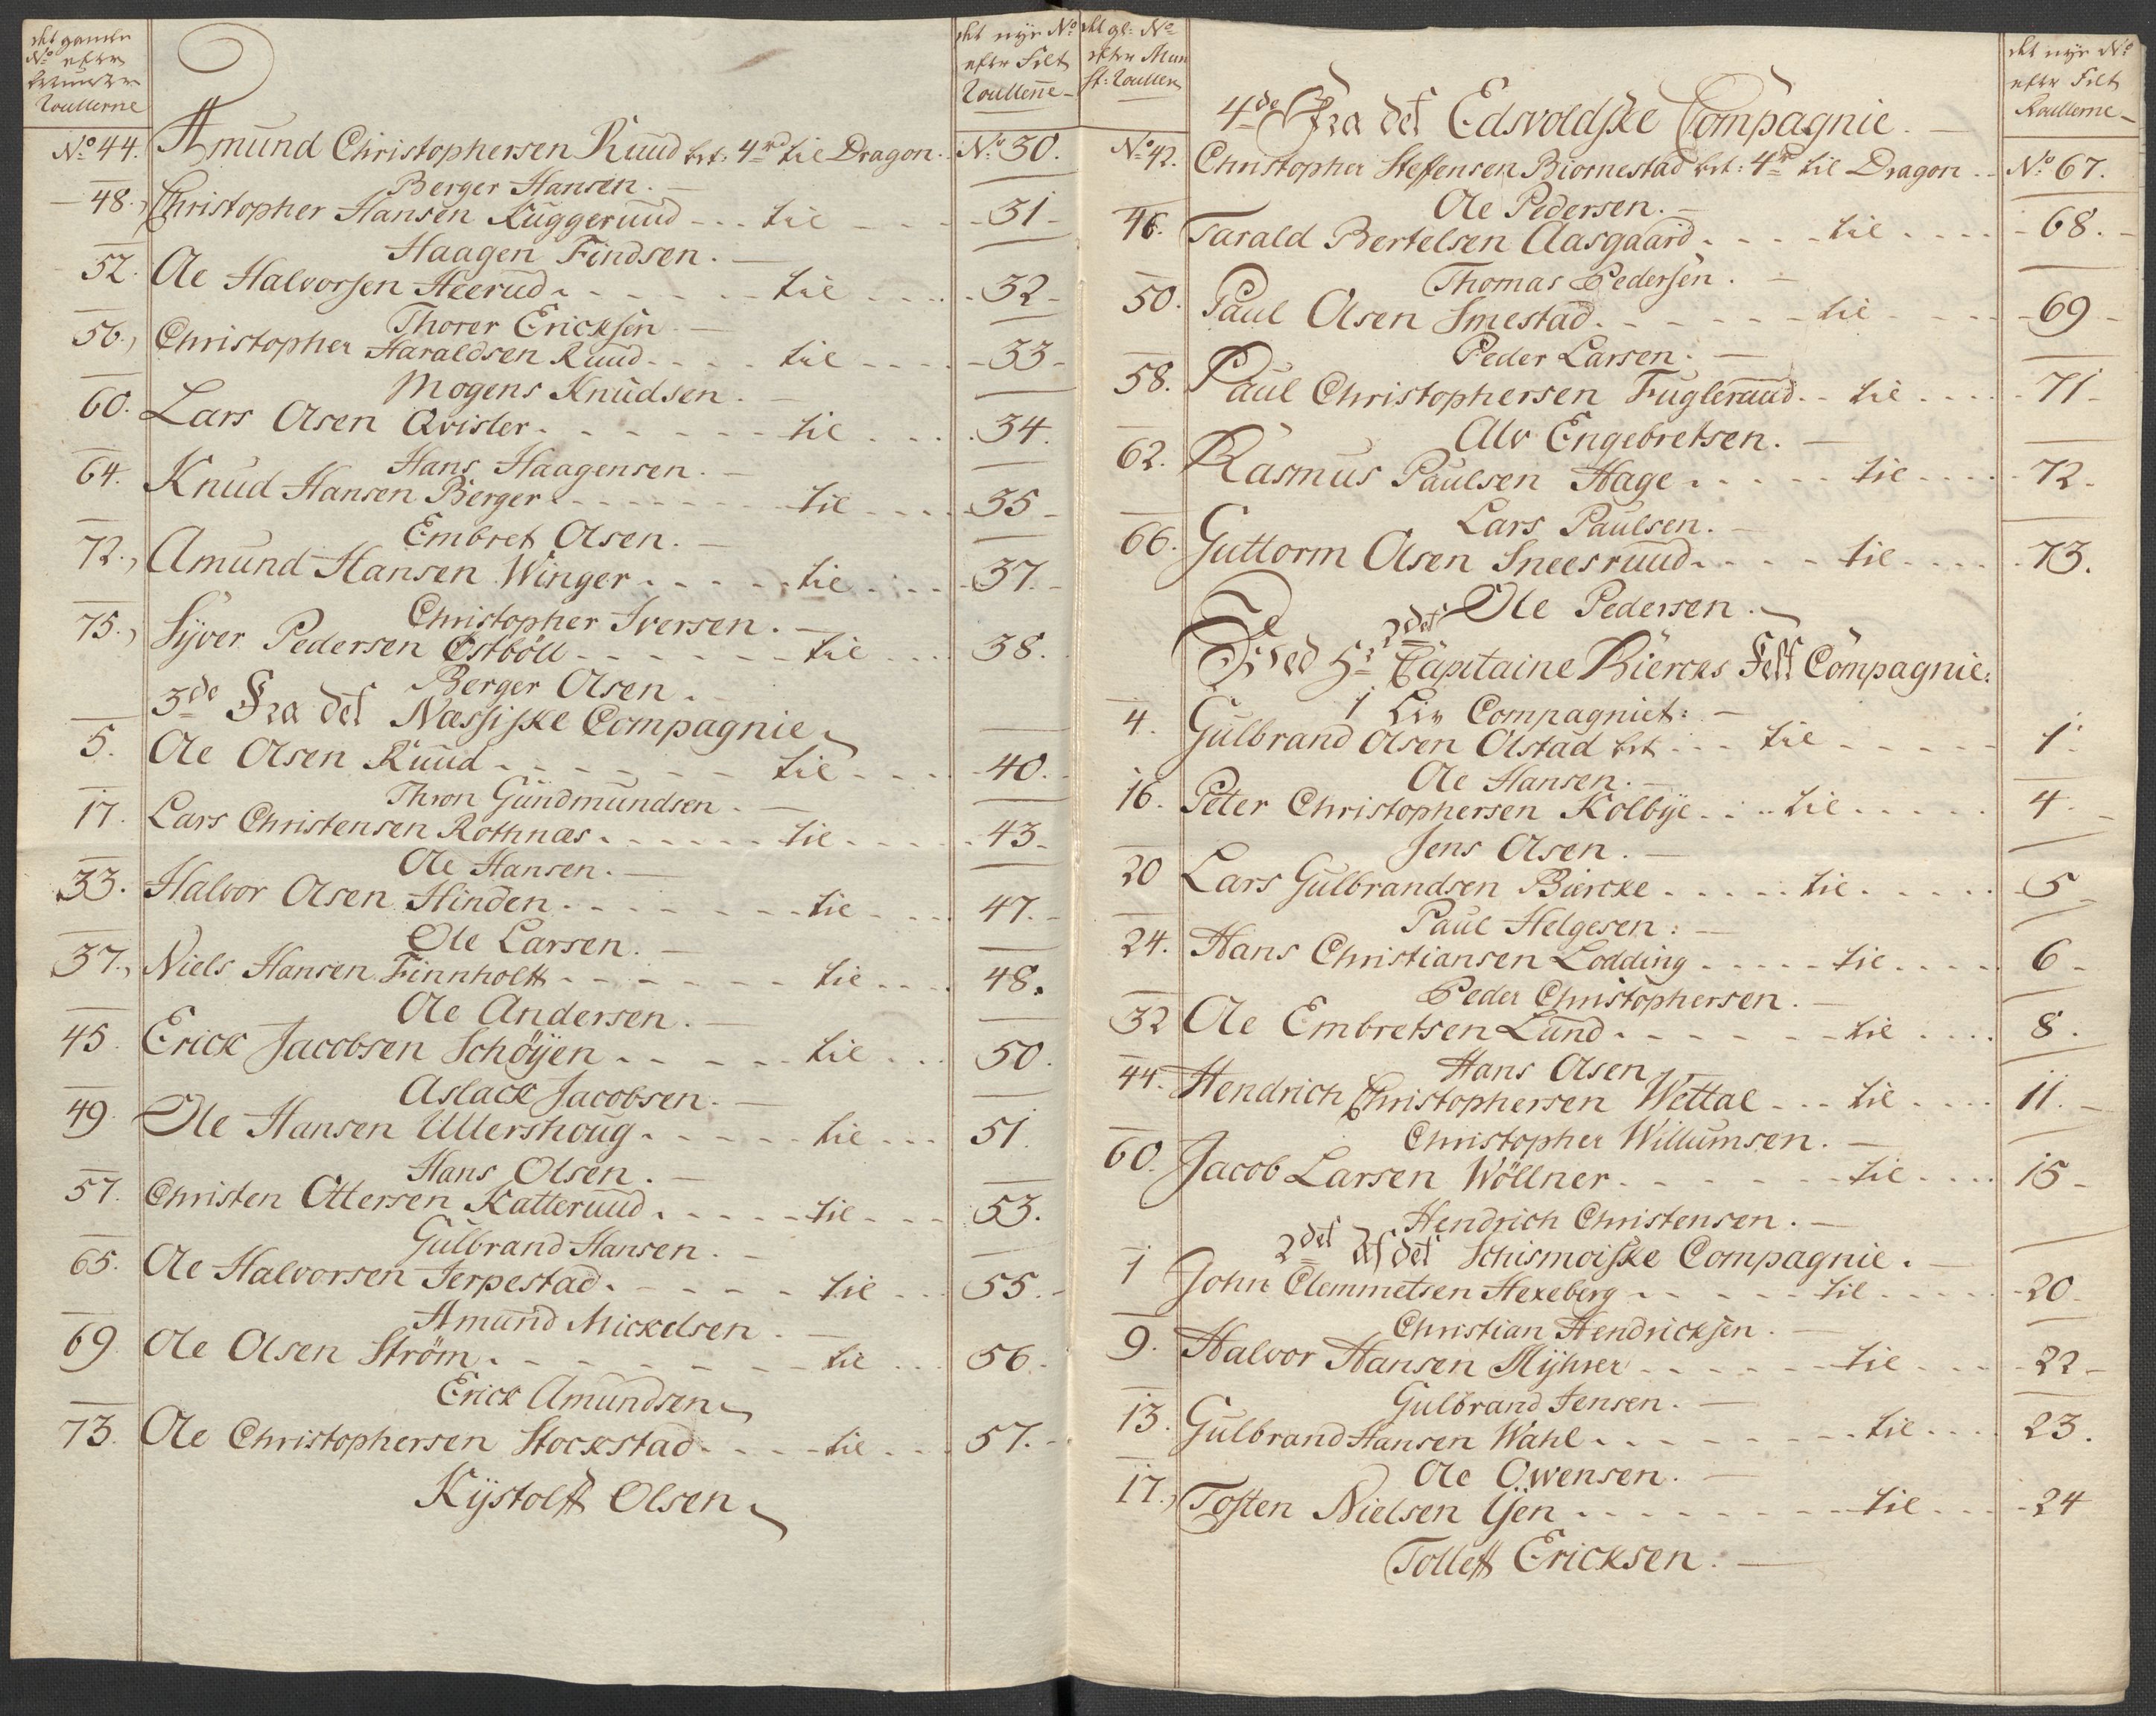 det gamle
No efter
Roullerne
det nye No
efter Felt
Roullerne
No 44. Amund Christophersen Ruud bet: 4rd til Dragon. No 30.
Berger Hansen.
48. Christopher Hansen Kuggeruud - - - til - - - 31
Haagen Findsen.
52. Ole Halvorsen Heerud - - - til - - - 32
Thorer Ericksen
56. Christopher Haraldsen Ruud - - - til - - - 33
Mogens Knudsen.
60. Lars Olsen Qvisler - - - til - - - 34.
Hans Haagensen.
64. Knud Hansen Berger - - - til - - - 35
Embret Olsen.
72. Amund Hansen Winger - - - til - - - 37.
Christopher Iversen.
75. Syver Pedersen Østböll - - - til - - - 38.
Berger Olsen.
3de Fra det Næssiske Compagnie
5. Ole Olsen Ruud - - - til - - - 40.
Thron Gundmundsen.
17. Lars Christensen Rothnæs - - - til - - - 43.
Ole Hansen.
33. Halvor Olsen Hinden - - - til - - - 47.
Ole Larsen.
37. Niels Hansen Finnholtt - - - til - - - 48.
Ole Andersen.
45. Erick Jacobsen Schöyen - - - til - - - 50.
Aslack Jacobsen.
49. Ole Hansen Ullershoug - - - til - - - 51.
Hans Olsen.
57. Christen Ottersen Katteruud - - - til - - - 53.
Gulbrand Hansen.
65. Ole Halvorsen Jerpestad - - - til - - - 55.
Amund Mickelsen.
69. Ole Olsen Ström - - - til - - - 56.
Erick Amundsen
73. Ole Christophersen Stockstad - - - til - - - 57.
Kystolff Olsen
det gl: No
efter Mun
st: Roullen
det nye No
efter Felt
Roullerne
4de Fra det Edsvoldske Compagnie.
No 42. Christopher Steffensen Biornestad bet: 4rd til Dragon - - No 67.
Ole Pedersen.
46. Tarald Bertelsen Aasgaard - - - til - - - 68.
Thomas Pedersen.
50. Paul Olsen Smestad - - - til - - - 69
Peder Larsen.
58. Paul Christophersen Fugleruud - - til - - - 71
Alv Engebretsen.
62. Rasmus Paulsen Hage - - - til - - - 72.
Lars Paulsen.
66. Guttorm Olsen Sneesruud - - - til - - - 73.
Ole Pedersen.
2det
Ved Hr Capitaine Bierckes Felt Compagnie:
1 Liv Compagniet:
4. Gulbrand Olsen Olstad bet - - - til - - - 1
Ole Hansen.
16. Peter Christophersen Kolbye - - - til - - - 4
Jens Olsen.
20 Lars Gulbrandsen Biercke - - - til - - - 5
Paul Helgesen:
24. Hans Christiansen Lodding - - - til - - - 6
Peder Christophersen.
32 Ole Embretsen Lund - - - til - - - 8.
Hans Olsen
44. Hendrich Christophersen Wettal - - - til - - - 11.
Christopher Willumsen.
60. Jacob Larsen Wöllner - - - til - - - 15
Hendrich Christensen.
2det Af det Schismoiske Compagnie.
1 John Clemmetsen Hexeberg - - - til - - - 20
Christian Hendricksen.
9. Halvor Hansen Myhrer - - - til - - - 22
Gulbrand Jensen.
13. Gulbrand Hansen Wahl - - - til - - - 23.
Ole Owensen.
17. Tosten Nielsen Ijen - - - til - - - 24
Tolleff Ericksen.